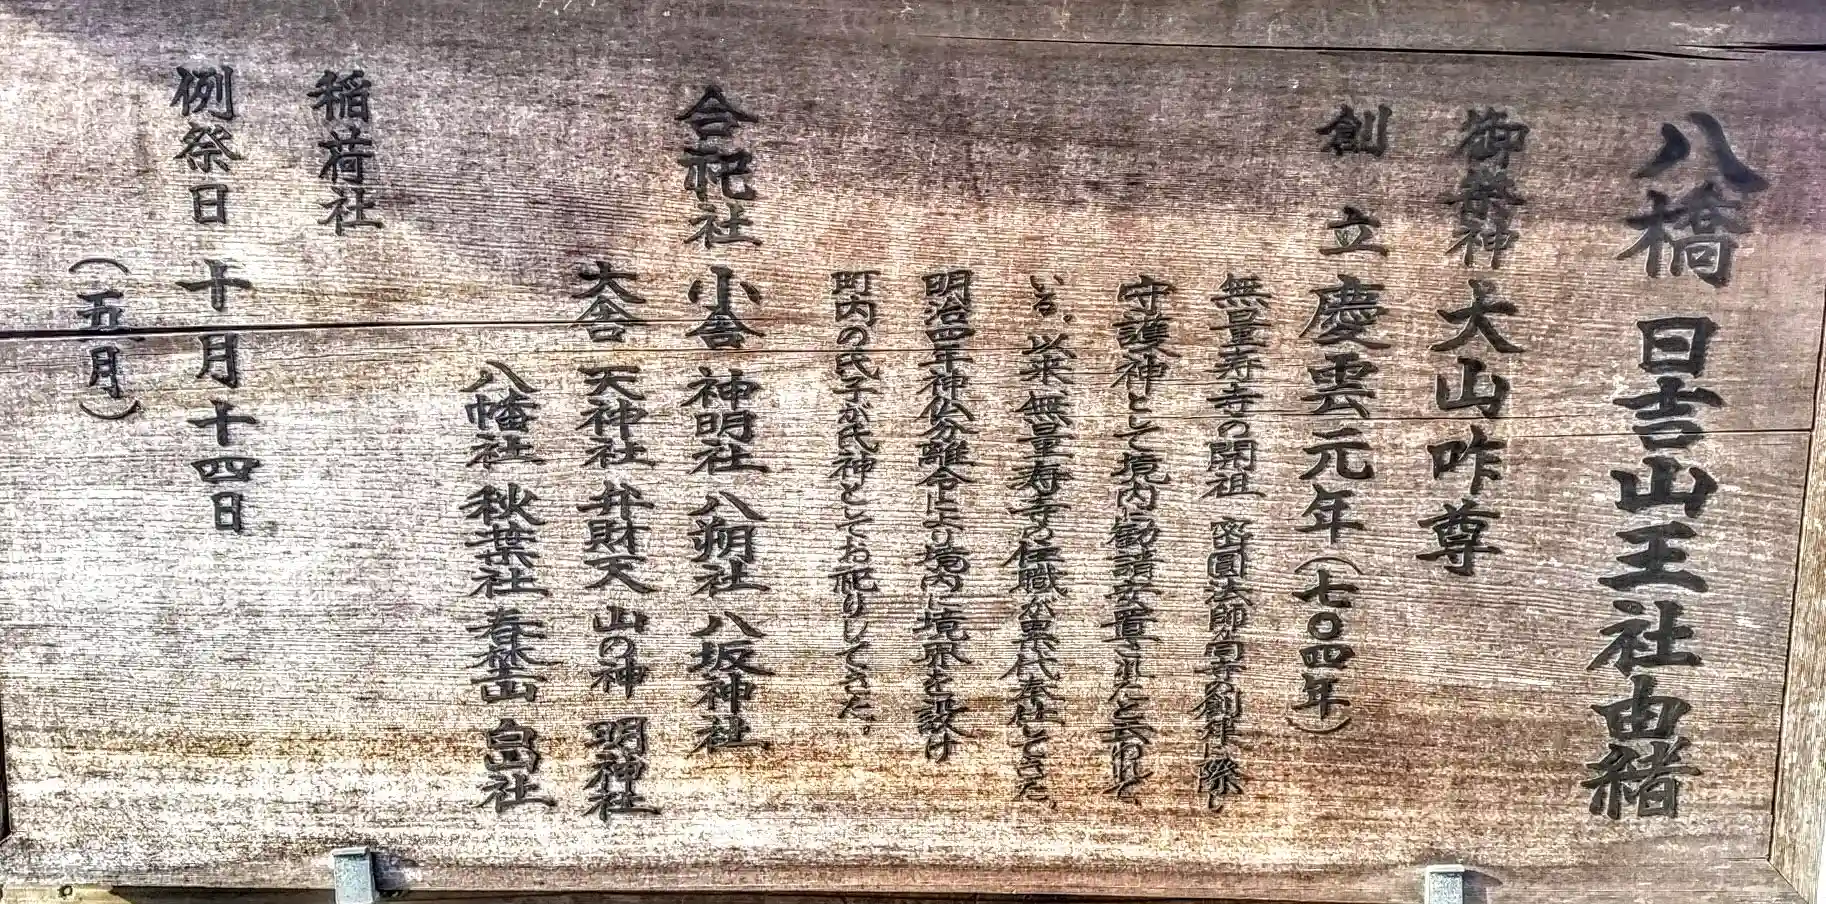 八橋 日吉山王社由緒
御祭神 大山咋尊
創立 慶雲元年(七〇四年)
無量寿寺の開祖 密圓法師が同寺の創建に際し
守護神として境内に勧請安尊されたと云われて
いる。以来無量寿寺の住職が累代奉仕してきた、
明治四年神仏分離令により境内に境界を設け
町内の氏子が氏神としてお祀りしてきた。
合祀社 小舎 神明社 八朔社 八坂神社
大舎 天神社 弁財天 山の神 明神社
八幡社 秋葉社 春埜山 白山社
稲荷社
例祭日 十月十四日
(五月)